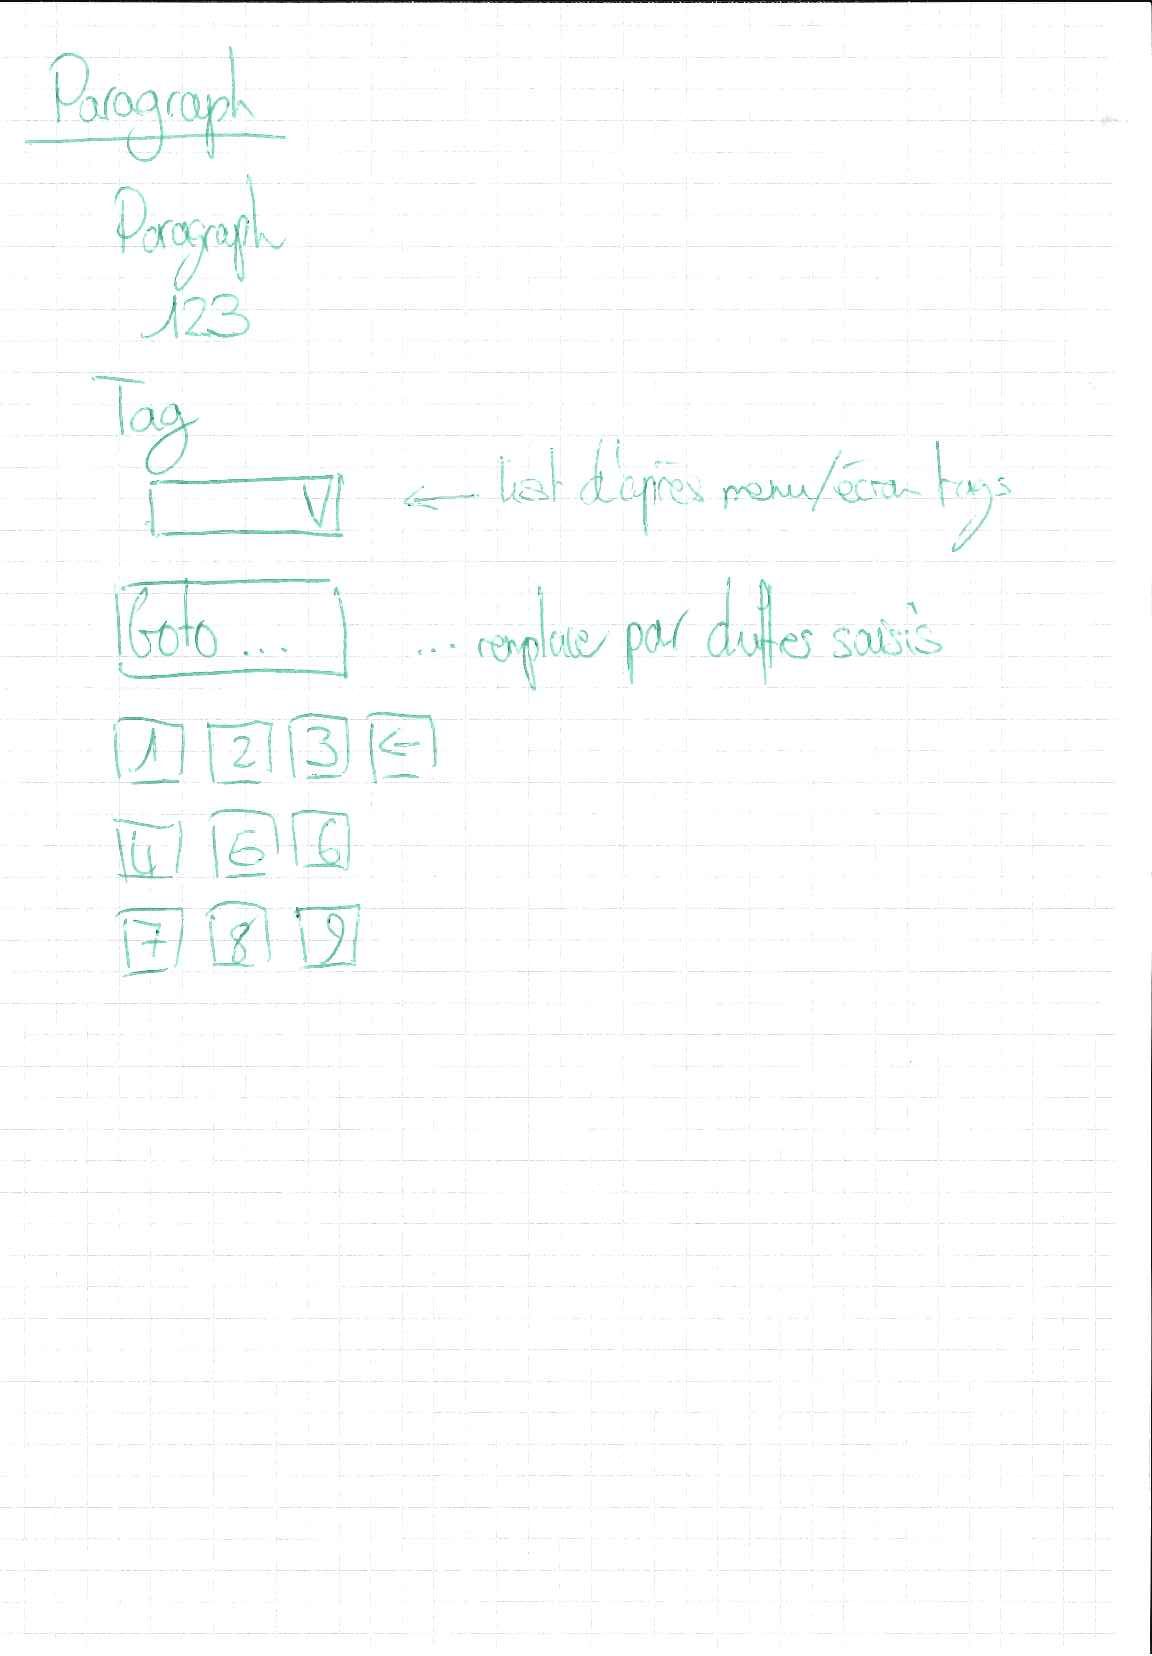 Paragraph
Paragraph
123
Tag
V
← list d'après menu/écran tags
Goto ...
... remplace par chiffres saisis
1 2 3 ←
4 5 6
7 8 9